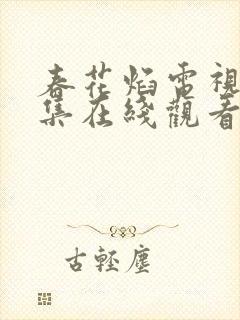 春花焰電視
集在綫觀看
古輕塵